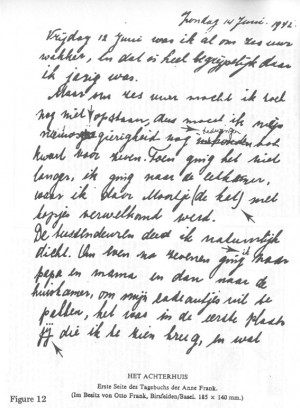 Zondag 14 Juni 1942.
Vrijdag 12 Juni was ik al om zes uur
wakker, en dat is heel begrijpelijk daar
ik jarig was.
Maar om zes uur mocht ik toch
nog niet opstaan, dus moest ik mijn
nieuwsgierigheid nog bedwingen tot
kwart voor zeven. Toen ging het niet
langer, ik ging naar de eetkamer,
waar ik door Moortje (de kat) met
kopjes verwelkomd werd.
De tussendeuren deed ik natuurlijk
dicht. Om even na zevenen ging ik naar
papa en mama en dan naar de
huiskamer, om mijn cadeautjes uit te
pakken, het was in de eerste plaats
jij die ik te zien kreeg, en wat
HET ACHTERHUIS
Erste Seite des Tagebuchs der Anne Frank.
(Im Besitz von Otto Frank, Birsfelden/Basel. 185 × 140 mm.)
Figure 12